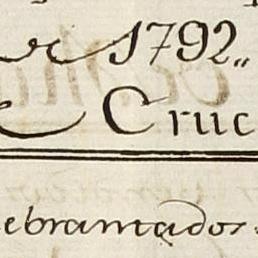 1792,,
Cruc
ebrantados